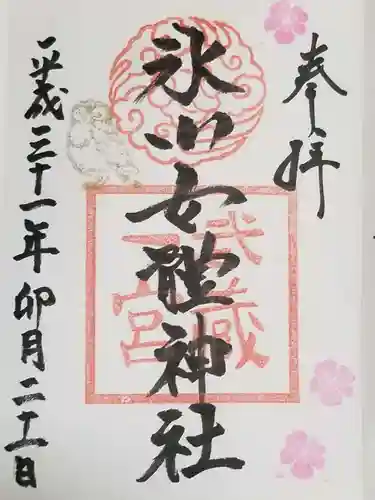 奉拝
氷川女體神社
武蔵
一宮
平成三十一年卯月二十二日